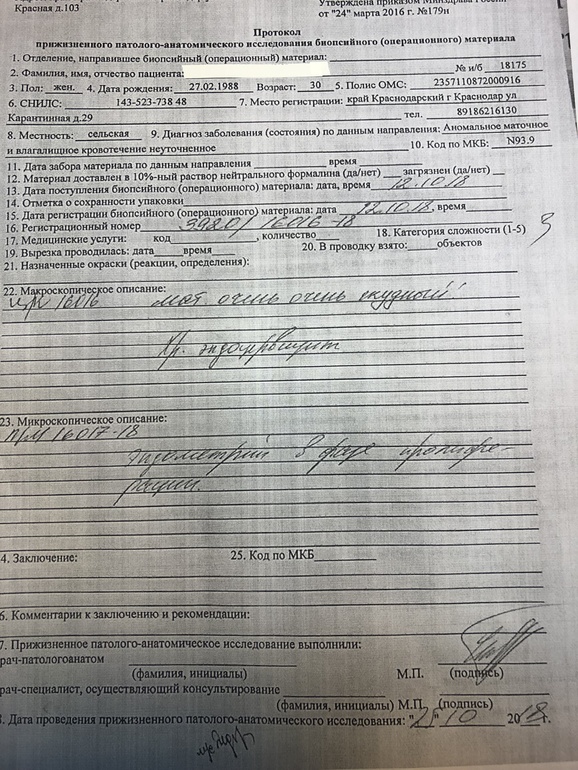 Красная д.103
Утверждена приказом Минздрава России
от "24" марта 2016 г. №179н
Протокол
прижизненного патолого-анатомического исследования биопсийного (операционного) материала
1. Отделение, направившее биопсийный (операционный) материал:
2. Фамилия, имя, отчество пациента: № и/б 18175
3. Пол: жен. 4. Дата рождения: 27.02.1988 Возраст: 30 5. Полис ОМС: 2357110872000916
6. СНИЛС: 143-523-738 48 7. Место регистрации: край Краснодарский г Краснодар ул
Карантинная д.29 тел. 89186216130
8. Местность: сельская 9. Диагноз заболевания (состояния) по данным направления: Аномальное маточное
и влагалищное кровотечение неуточненное 10. Код по МКБ: N93.9
11. Дата забора материала по данным направления время
12. Материал доставлен в 10%-ный раствор нейтрального формалина (да/нет) загрязнен (да/нет)
13. Дата поступления биопсийного (операционного) материала: дата, время 12.10.18
14. Отметка о сохранности упаковки
15. Дата регистрации биопсийного (операционного) материала: дата 12.10.18, время
16. Регистрационный номер 16016-18
17. Медицинские услуги: код , количество 18. Категория сложности (1-5) 3
19. Вырезка проводилась: дата время 20. В проводку взято: объектов
21. Назначенные окраски (реакции, определения):
22. Макроскопическое описание:
16016 мат очень очень скудный!
Хр. эндоцервицит
23. Микроскопическое описание:
16017-18
Эндометрий в фазе пролифе-
рации.
4. Заключение: 25. Код по МКБ
6. Комментарии к заключению и рекомендации:
7. Прижизненное патолого-анатомическое исследование выполнили:
рач-патологоанатом
(фамилия, инициалы) М.П. (подпись)
рач-специалист, осуществляющий консультирование
(фамилия, инициалы) М.П. (подпись)
. Дата проведения прижизненного патолого-анатомического исследования: " " 10 2018г.